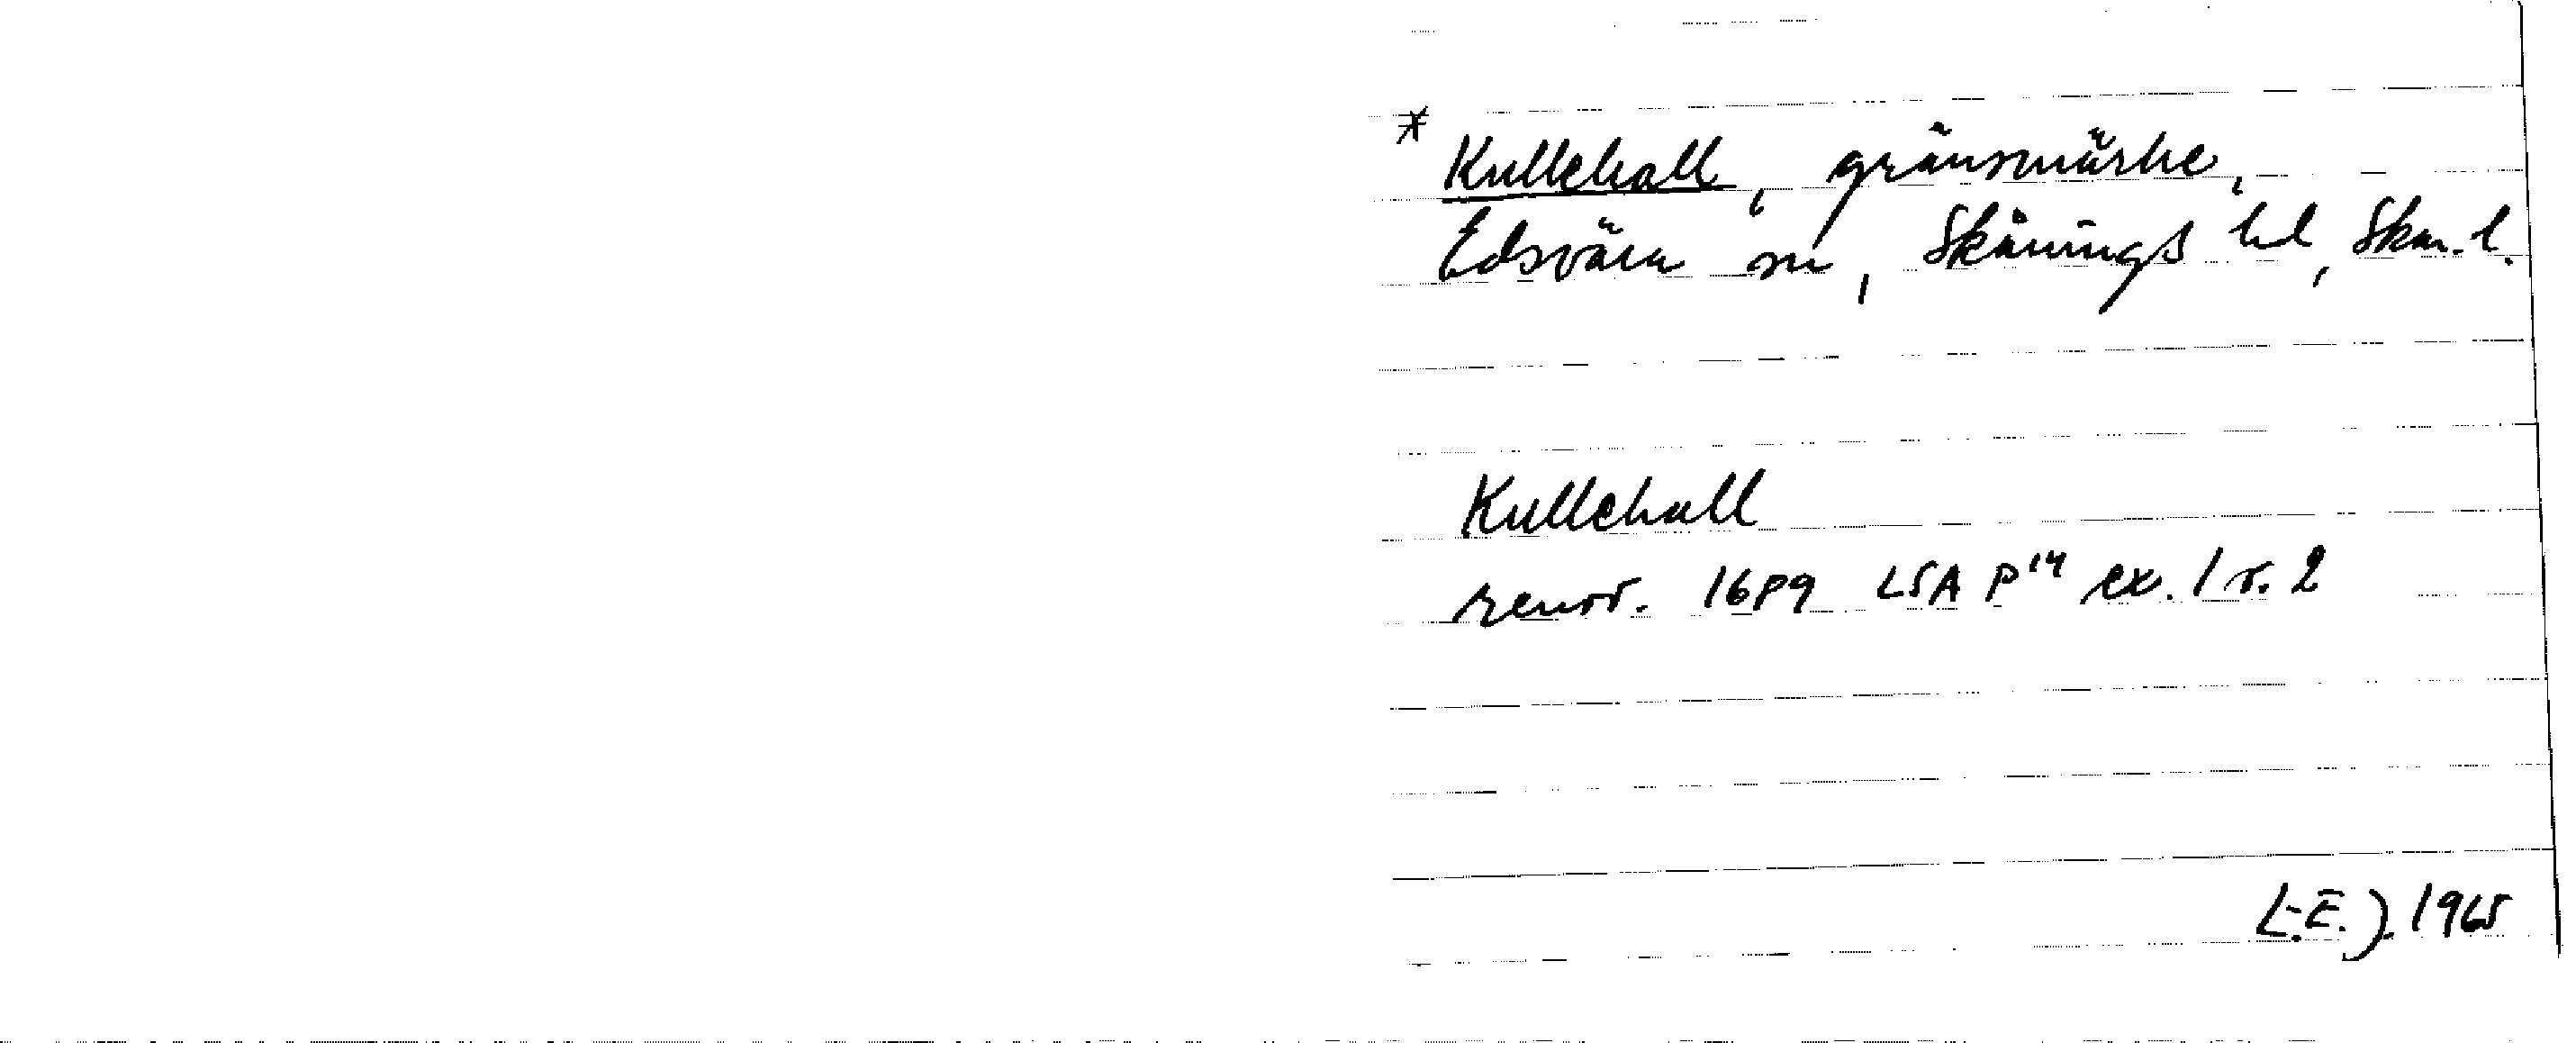 * Kullehall, gränsmärke,
Edsvära sn, Skånings hd, Skar. l.
Kullehall
renov. 1689 LSA P¹⁴ ex. 1 s. 2
L.E.J. 1965